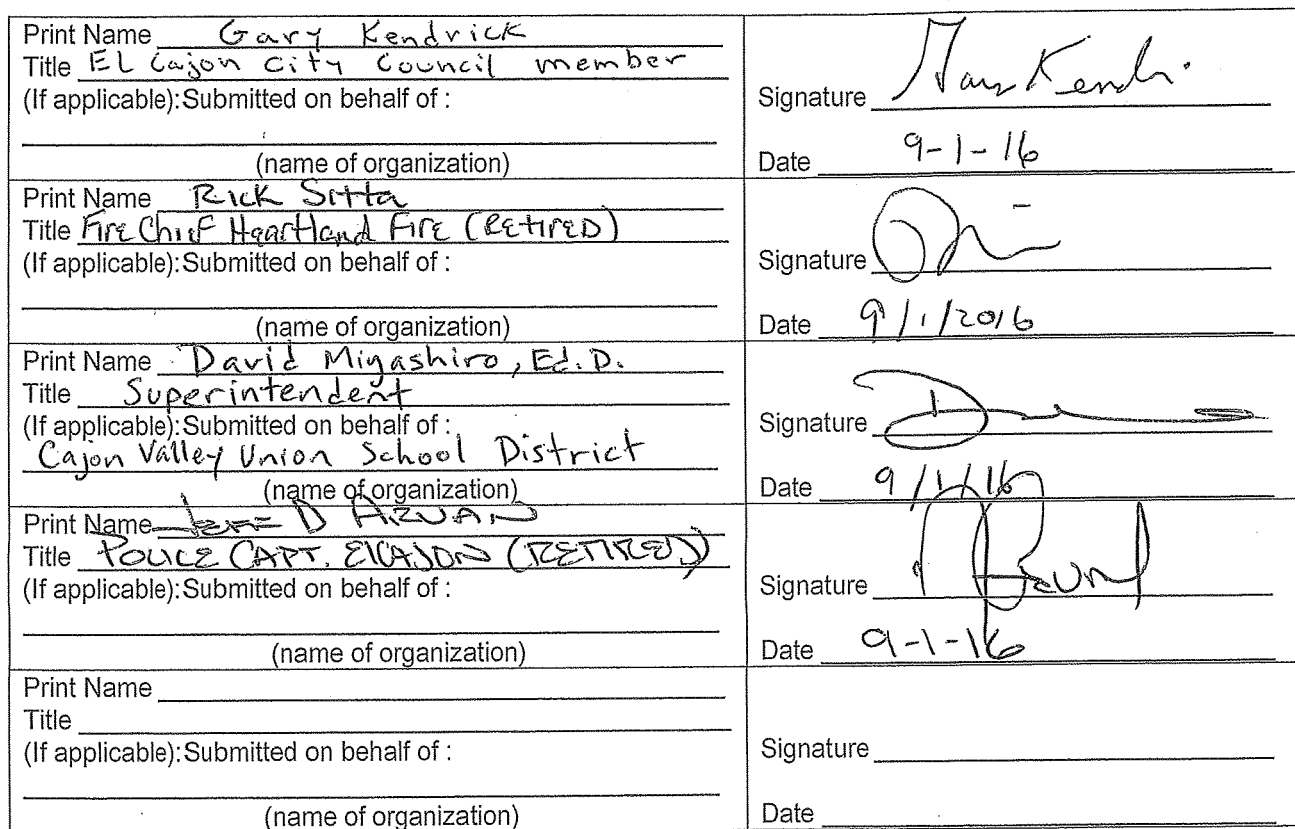 Print Name Gary Kendrick
Title El Cajon City Council member
(If applicable):Submitted on behalf of :
(name of organization)
Signature Gary Kendri
Date 9-1-16
Print Name Rick Sitta
Title Fire Chief Heartland Fire (Retired)
(If applicable):Submitted on behalf of :
(name of organization)
Signature
Date 9/1/2016
Print Name David Miyashiro, Ed.D.
Title Superintendent
(If applicable):Submitted on behalf of :
Cajon Valley Union School District
(name of organization)
Signature
Date 9/1/16
Print Name D
Title POLICE CAPT. El CAJON (RETIRED)
(If applicable):Submitted on behalf of :
(name of organization)
Signature
Date 9-1-16
Print Name
Title
(If applicable):Submitted on behalf of :
(name of organization)
Signature
Date